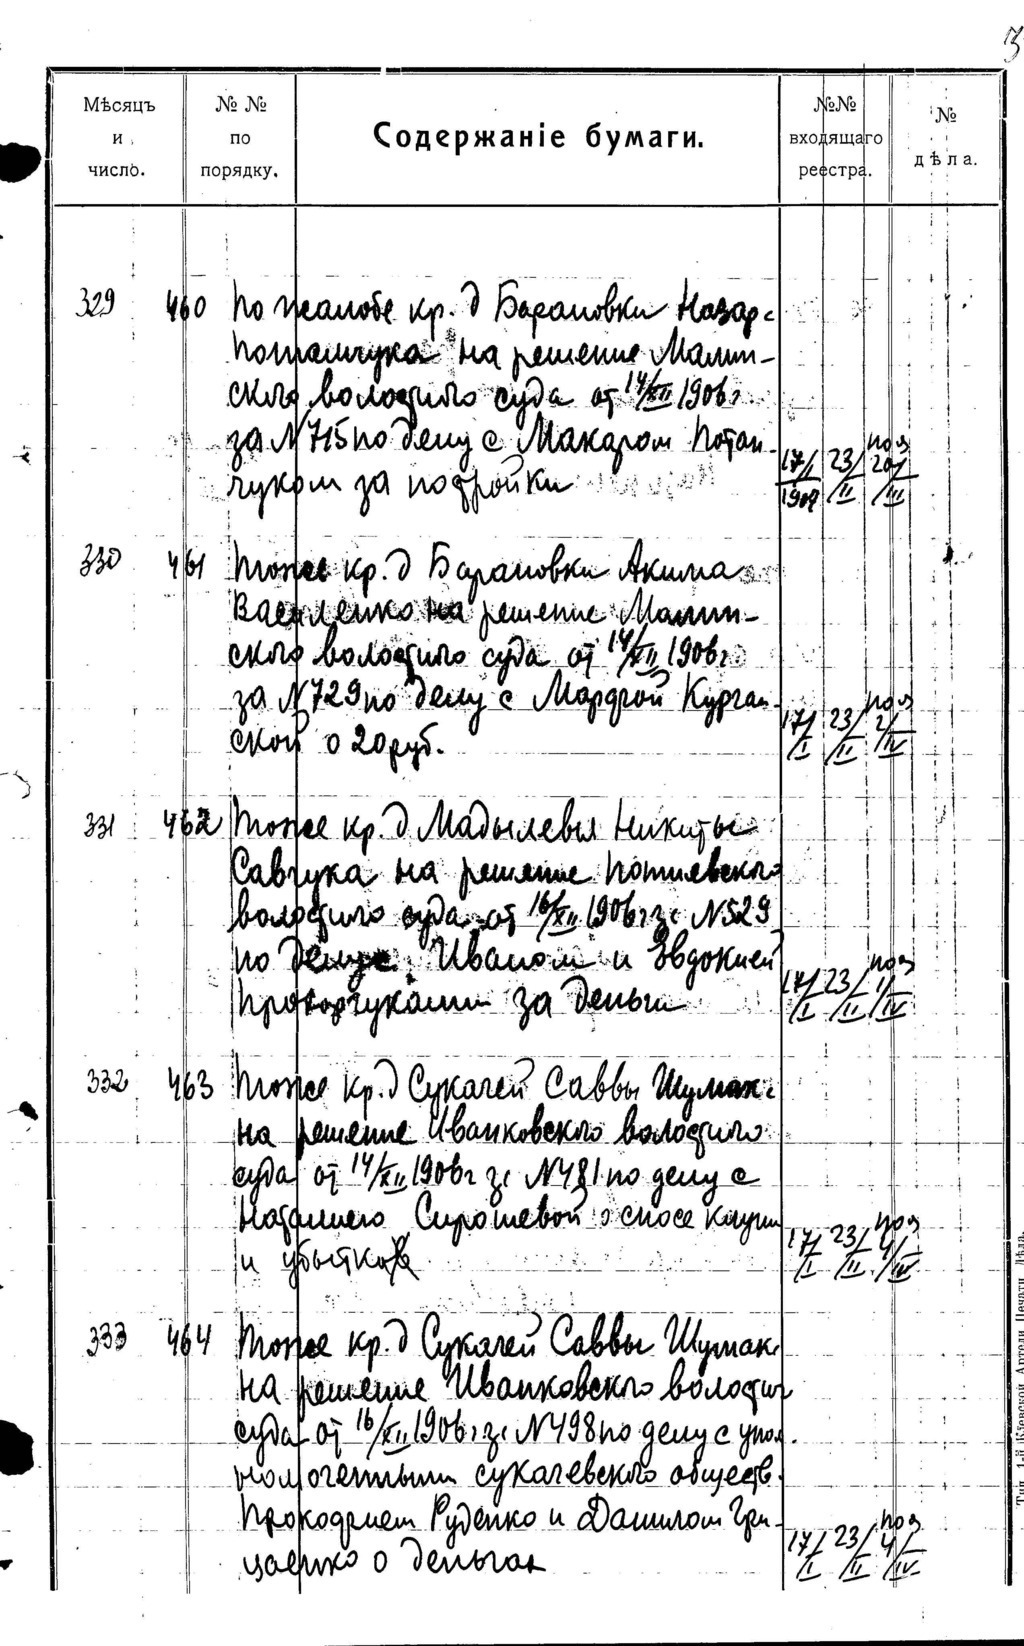 3
Мѣсяцъ и число.
№ № по порядку.
Содержаніе бумаги.
№№ входящаго реестра.
№ дѣла.
329 460 По жалобе кр. д Барановки Назара
Потапчука на решение Малин-
ского волостного суда от 14/XII 1906г
за N 715 по делу с Макаром Потап-
чуком за постройки
17/I 1907 23/II 20/III
330 461 Тоже кр. д Барановки Акима
Василенко на решение Малин-
ского волостного суда от 14/XII 1906г
за N 729 по делу с Марфой Курган-
ской о 20 руб.
17/I 23/II 2/IV
331 462 Тоже кр. д Мадылевы Никиты
Савчука на решение Потиевского
волостного суда от 16/XII 1906г за N 529
по делу с Иваном и Эвдокией
Прокопчуками за деньги
17/I 23/II 1/IV
332 463 Тоже кр. д Сукачей Саввы Шумак
на решение Иванковского волостного
суда от 14/XII 1906г за N 481 по делу с
Наталиею Сирошевой о сносе клуни
и убытков
17/I 23/II 4/IV
333 464 Тоже кр. д Сукачей Саввы Шумак
на решение Иванковского волостн
суда от 16/XII 1906г за N 498 по делу с упол-
номоченными сукачевского обществ.
Прокофием Руденко и Данилом Гри-
цаенко о деньгах
17/I 23/II 4/IV
Тип. 1-й Кіевской Артели Печатн. Дѣла.